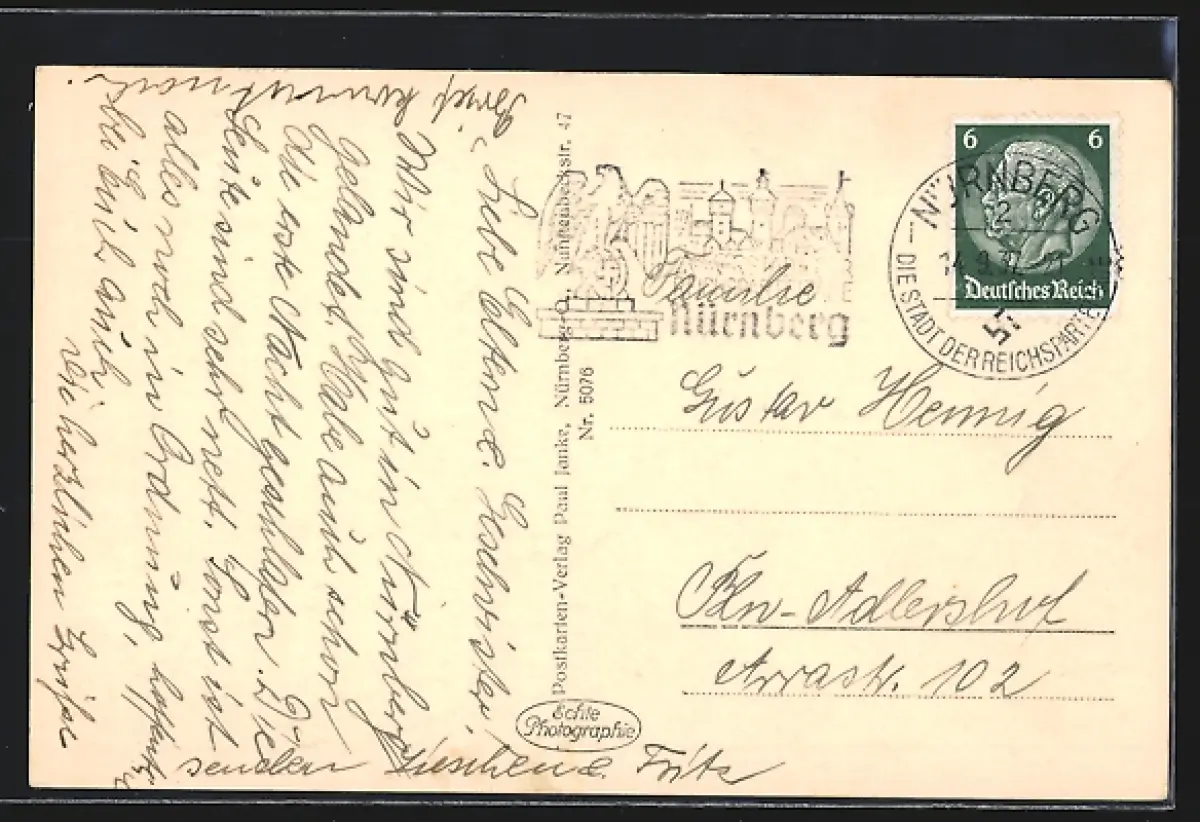 Liebe Eltern u. Geschwister,
Wir sind gut in Nürnberg
gelandet. Habe auch schon
die erste Nacht geschlafen. Die
Leute sind sehr nett. Sonst ist
alles noch in Ordnung, hoffentlich
bei Euch auch.
Die herzlichen Grüße
senden Lieschen u. Fritz
Postkarten-Verlag Paul Janke, Nürnberg-O., Nunnenbeckstr. 47
Nr. 5076
Echte
Photographie
Nürnberg
6 6
Deutsches Reich
NÜRNBERG
2
14.9.37
DIE STADT DER REICHSPARTEI
Familie
Gustav Hennig
Bln-Adlershof
Arrastr. 102